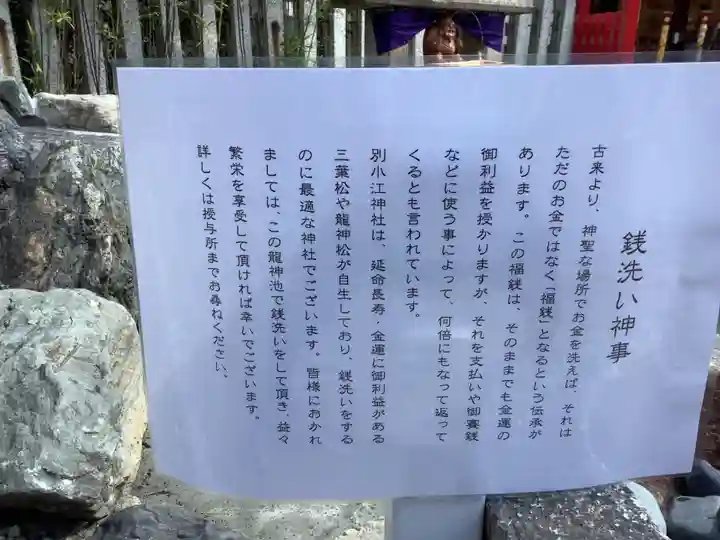 銭洗い神事
古来より、神聖な場所でお金を洗えば、それは
ただのお金ではなく「福銭」となるという伝承が
あります。この福銭は、そのままでも金運の
御利益を授かりますが、それを支払いや御賽銭
などに使う事によって、何倍にもなって返って
くるとも言われています。
別小江神社は、延命長寿・金運に御利益がある
三葉松や龍神松が自生しており、銭洗いをする
のに最適な神社でございます。皆様におかれ
ましては、この龍神池で銭洗いをして頂き、益々
繁栄を享受して頂ければ幸いでございます。
詳しくは授与所までお尋ねください。